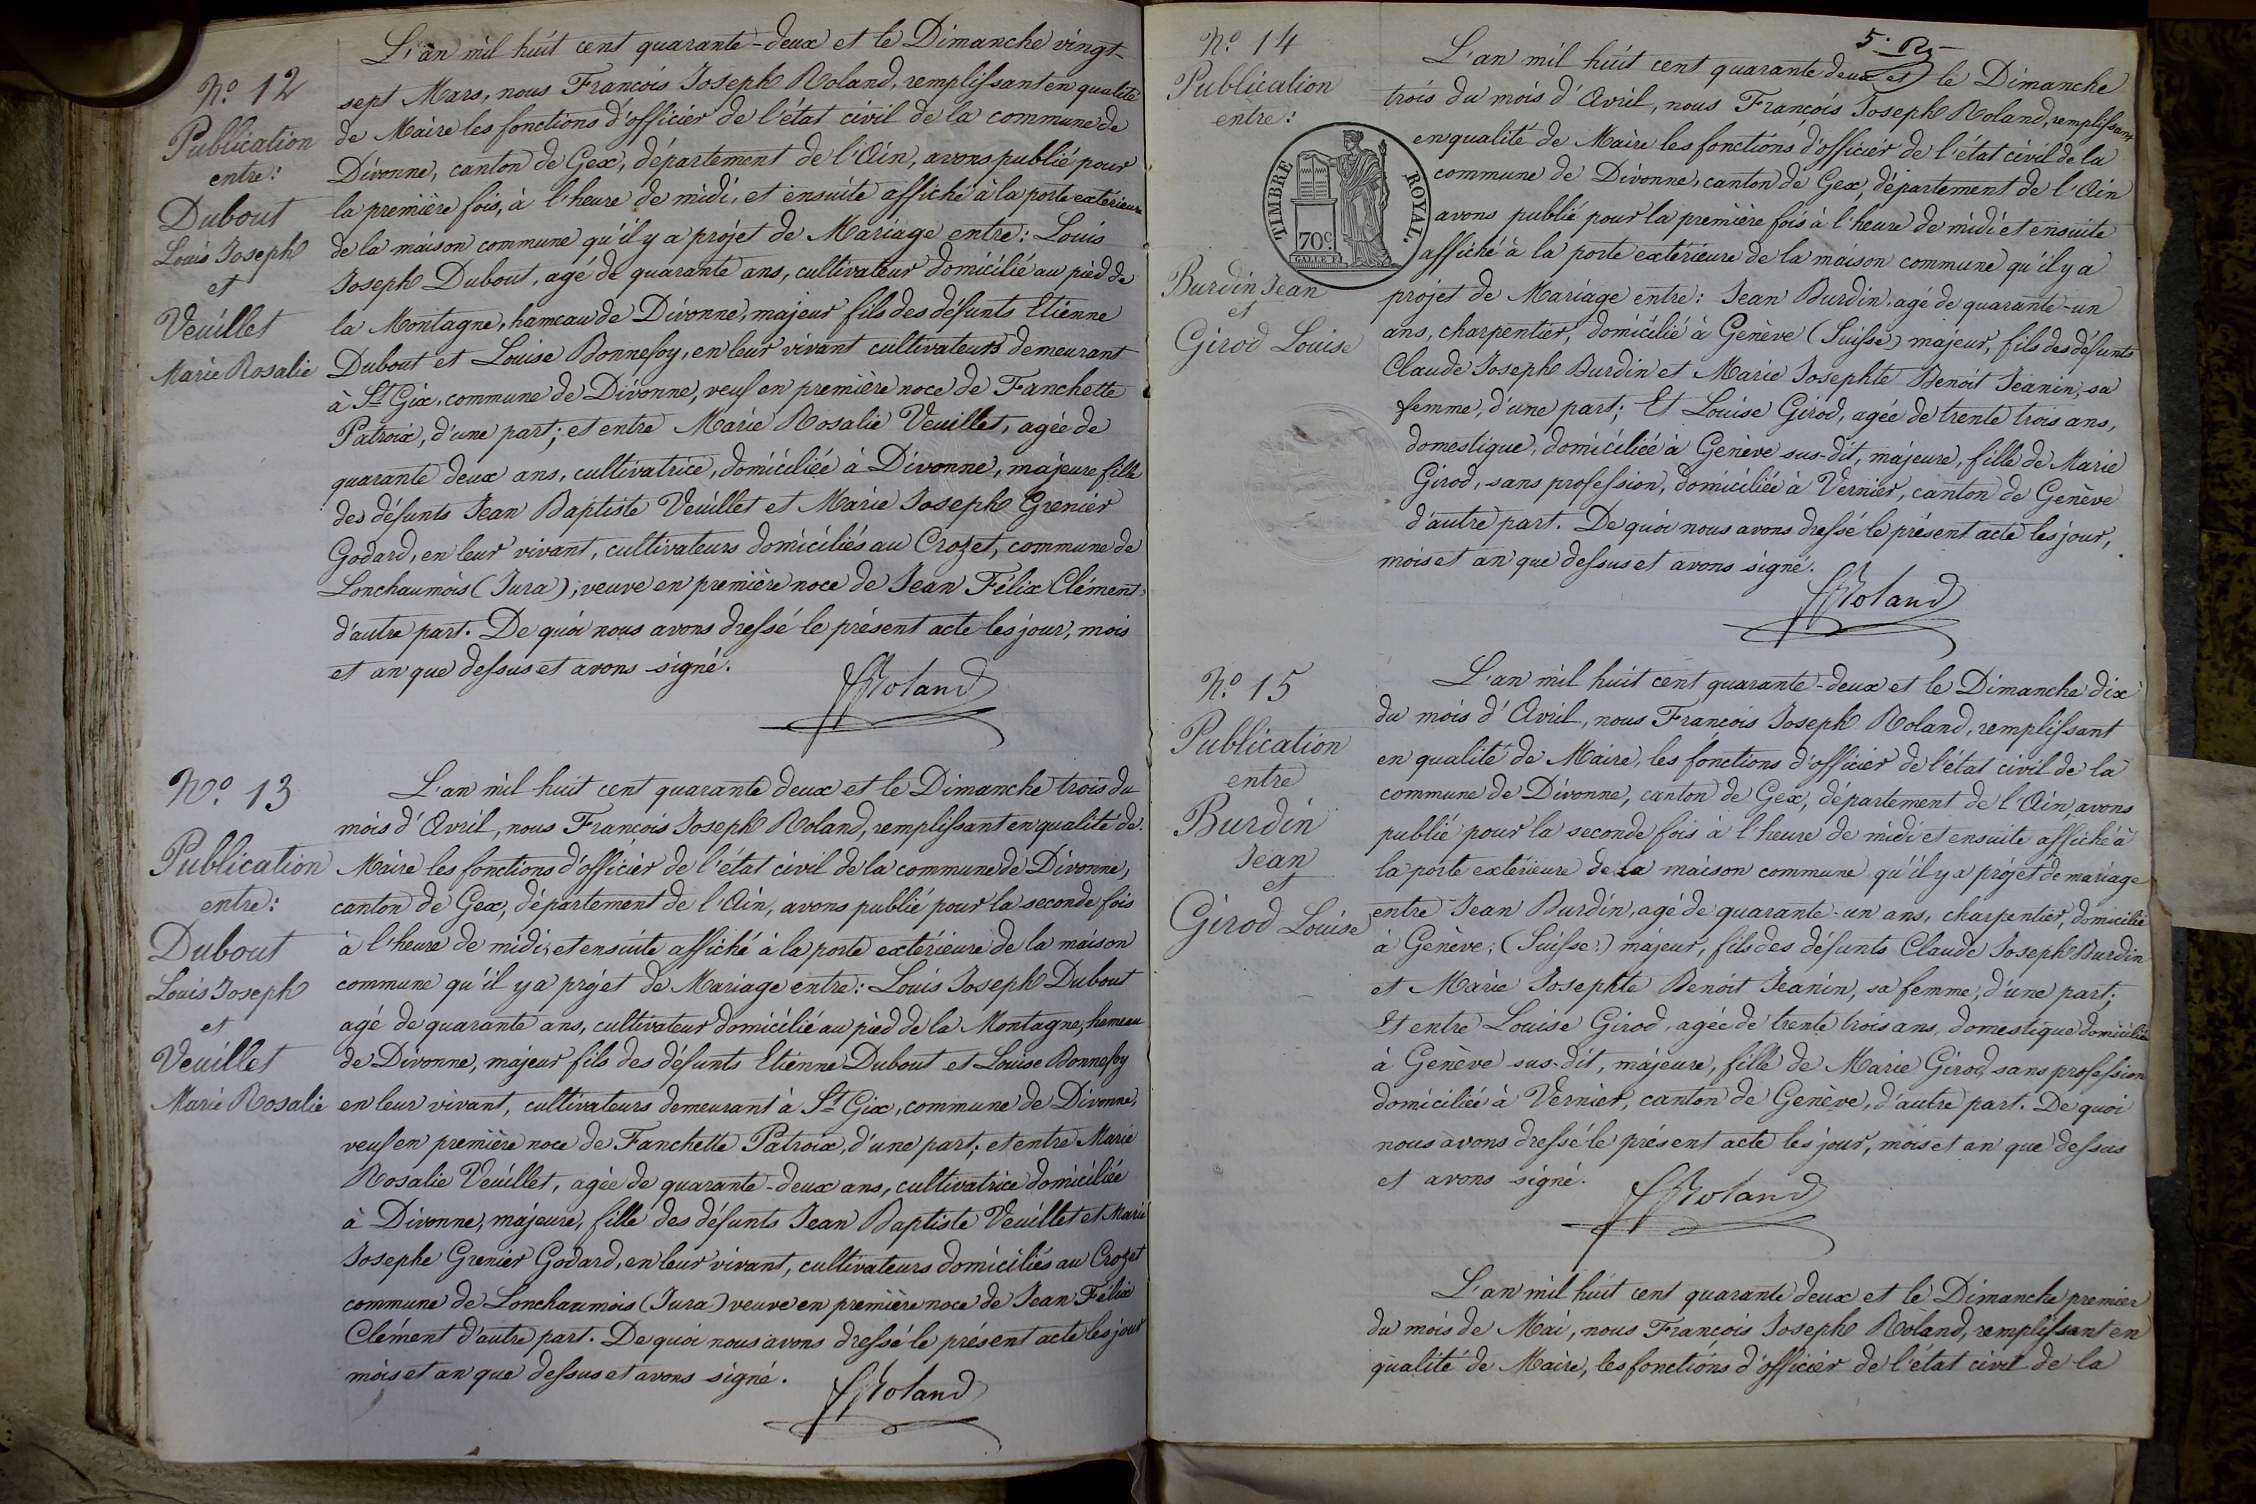 Nº 12
Publication
entre:
Dubout
Louis Joseph
et
Veuillet
Marie Rosalie
L'an mil huit cent quarante-deux et le Dimanche vingt-
sept Mars, nous François Joseph Roland, remplissant en qualité
de Maire les fonctions d'officier de l'état civil de la commune de
Divonne, canton de Gex, département de l'Ain, avons publié pour
la première fois, à l'heure de midi, et ensuite affiché à la porte extérieure
de la maison commune qu'il y a projet de Mariage entre: Louis
Joseph Dubout, agé de quarante ans, cultivateur domicilié au pied de
la Montagne, hameau de Divonne, majeur fils des défunts Etienne
Dubout et Louise Bonnefoy, en leur vivant cultivateurs demeurant
à St Gix, commune de Divonne, veuf en première noce de Fanchette
Patroix, d'une part; et entre Marie Rosalie Veuillet, agée de
quarante deux ans, cultivatrice, domiciliée à Divonne, majeure fille
des défunts Jean Baptiste Veuillet et Marie Joseph Grenier
Godard, en leur vivant, cultivateurs domiciliés au Crozet, commune de
Lonchaumois (Jura), veuve en première noce de Jean Félix Clément
d'autre part. De quoi nous avons dressé le présent acte les jour, mois
et an que dessus et avons signé.
FRoland
Nº 13
Publication
entre:
Dubout
Louis Joseph
et
Veuillet
Marie Rosalie
L'an mil huit cent quarante deux et le Dimanche trois du
mois d'Avril, nous François Joseph Roland, remplissant en qualité de
Maire les fonctions d'officier de l'état civil de la commune de Divonne,
canton de Gex, département de l'Ain, avons publié pour la seconde fois
à l'heure de midi, et ensuite affiché à la porte extérieure de la maison
commune qu'il y a projet de Mariage entre: Louis Joseph Dubout
agé de quarante ans, cultivateur domicilié au pied de la Montagne, hameau
de Divonne, majeur fils des défunts Etienne Dubout et Louise Bonnefoy
en leur vivant, cultivateurs demeurant à St Gix, commune de Divonne,
veuf en première noce de Fanchette Patroix, d'une part; et entre Marie
Rosalie Veuillet, agée de quarante-deux ans, cultivatrice domiciliée
à Divonne, majeure, fille des défunts Jean Baptiste Veuillet et Marie
Josephe Grenier Godard, en leur vivant, cultivateurs domiciliés au Crozet
commune de Lonchaumois (Jura) veuve en première noce de Jean Félix
Clément d'autre part. De quoi nous avons dressé le présent acte les jour
mois et an que dessus et avons signé.
FRoland
Nº 14
Publication
entre:
Burdin Jean
et
Girod Louise
TIMBRE ROYAL.
70c.
L'an mil huit cent quarante deux et le Dimanche
trois du mois d'Avril, nous François Joseph Roland, remplissant
en qualité de Maire les fonctions d'officier de l'état civil de la
commune de Divonne, canton de Gex, département de l'Ain
avons publié pour la première fois à l'heure de midi et ensuite
affiché à la porte extérieure de la maison commune qu'il y a
projet de Mariage entre: Jean Burdin, agé de quarante-un
ans, charpentier, domicilié à Genève (Suisse) majeur, fils des défunts
Claude Joseph Burdin et Marie Josephte Benoit Jeanin, sa
femme, d'une part; Et Louise Girod, agée de trente trois ans,
domestique, domiciliée à Genève sus-dit, majeure, fille de Marie
Girod, sans profession, domiciliée à Vernier, canton de Genève
d'autre part. De quoi nous avons dressé le présent acte les jour,
mois et an que dessus et avons signé.
FRoland
Nº 15
Publication
entre
Burdin
Jean
et
Girod Louise
L'an mil huit cent quarante-deux et le Dimanche dix
du mois d'Avril, nous François Joseph Roland, remplissant
en qualité de Maire, les fonctions d'officier de l'état civil de la
commune de Divonne, canton de Gex, département de l'Ain, avons
publié pour la seconde fois à l'heure de midi et ensuite affiché à
la porte extérieure de la maison commune qu'il y a projet de mariage
entre Jean Burdin, agé de quarante-un ans, charpentier, domicilié
à Genève, (Suisse) majeur, fils des défunts Claude Joseph Burdin
et Marie Josephte Benoit Jeanin, sa femme, d'une part;
Et entre Louise Girod, agée de trente trois ans, domestique domiciliée
à Genève sus-dit, majeure, fille de Marie Girod, sans profession
domiciliée à Vernier, canton de Genève, d'autre part. De quoi
nous avons dressé le présent acte les jour, mois et an que dessus
et avons signé.
FRoland
L'an mil huit cent quarante deux et le Dimanche premier
du mois de Mai, nous François Joseph Roland, remplissant en
qualité de Maire, les fonctions d'officier de l'état civil de la